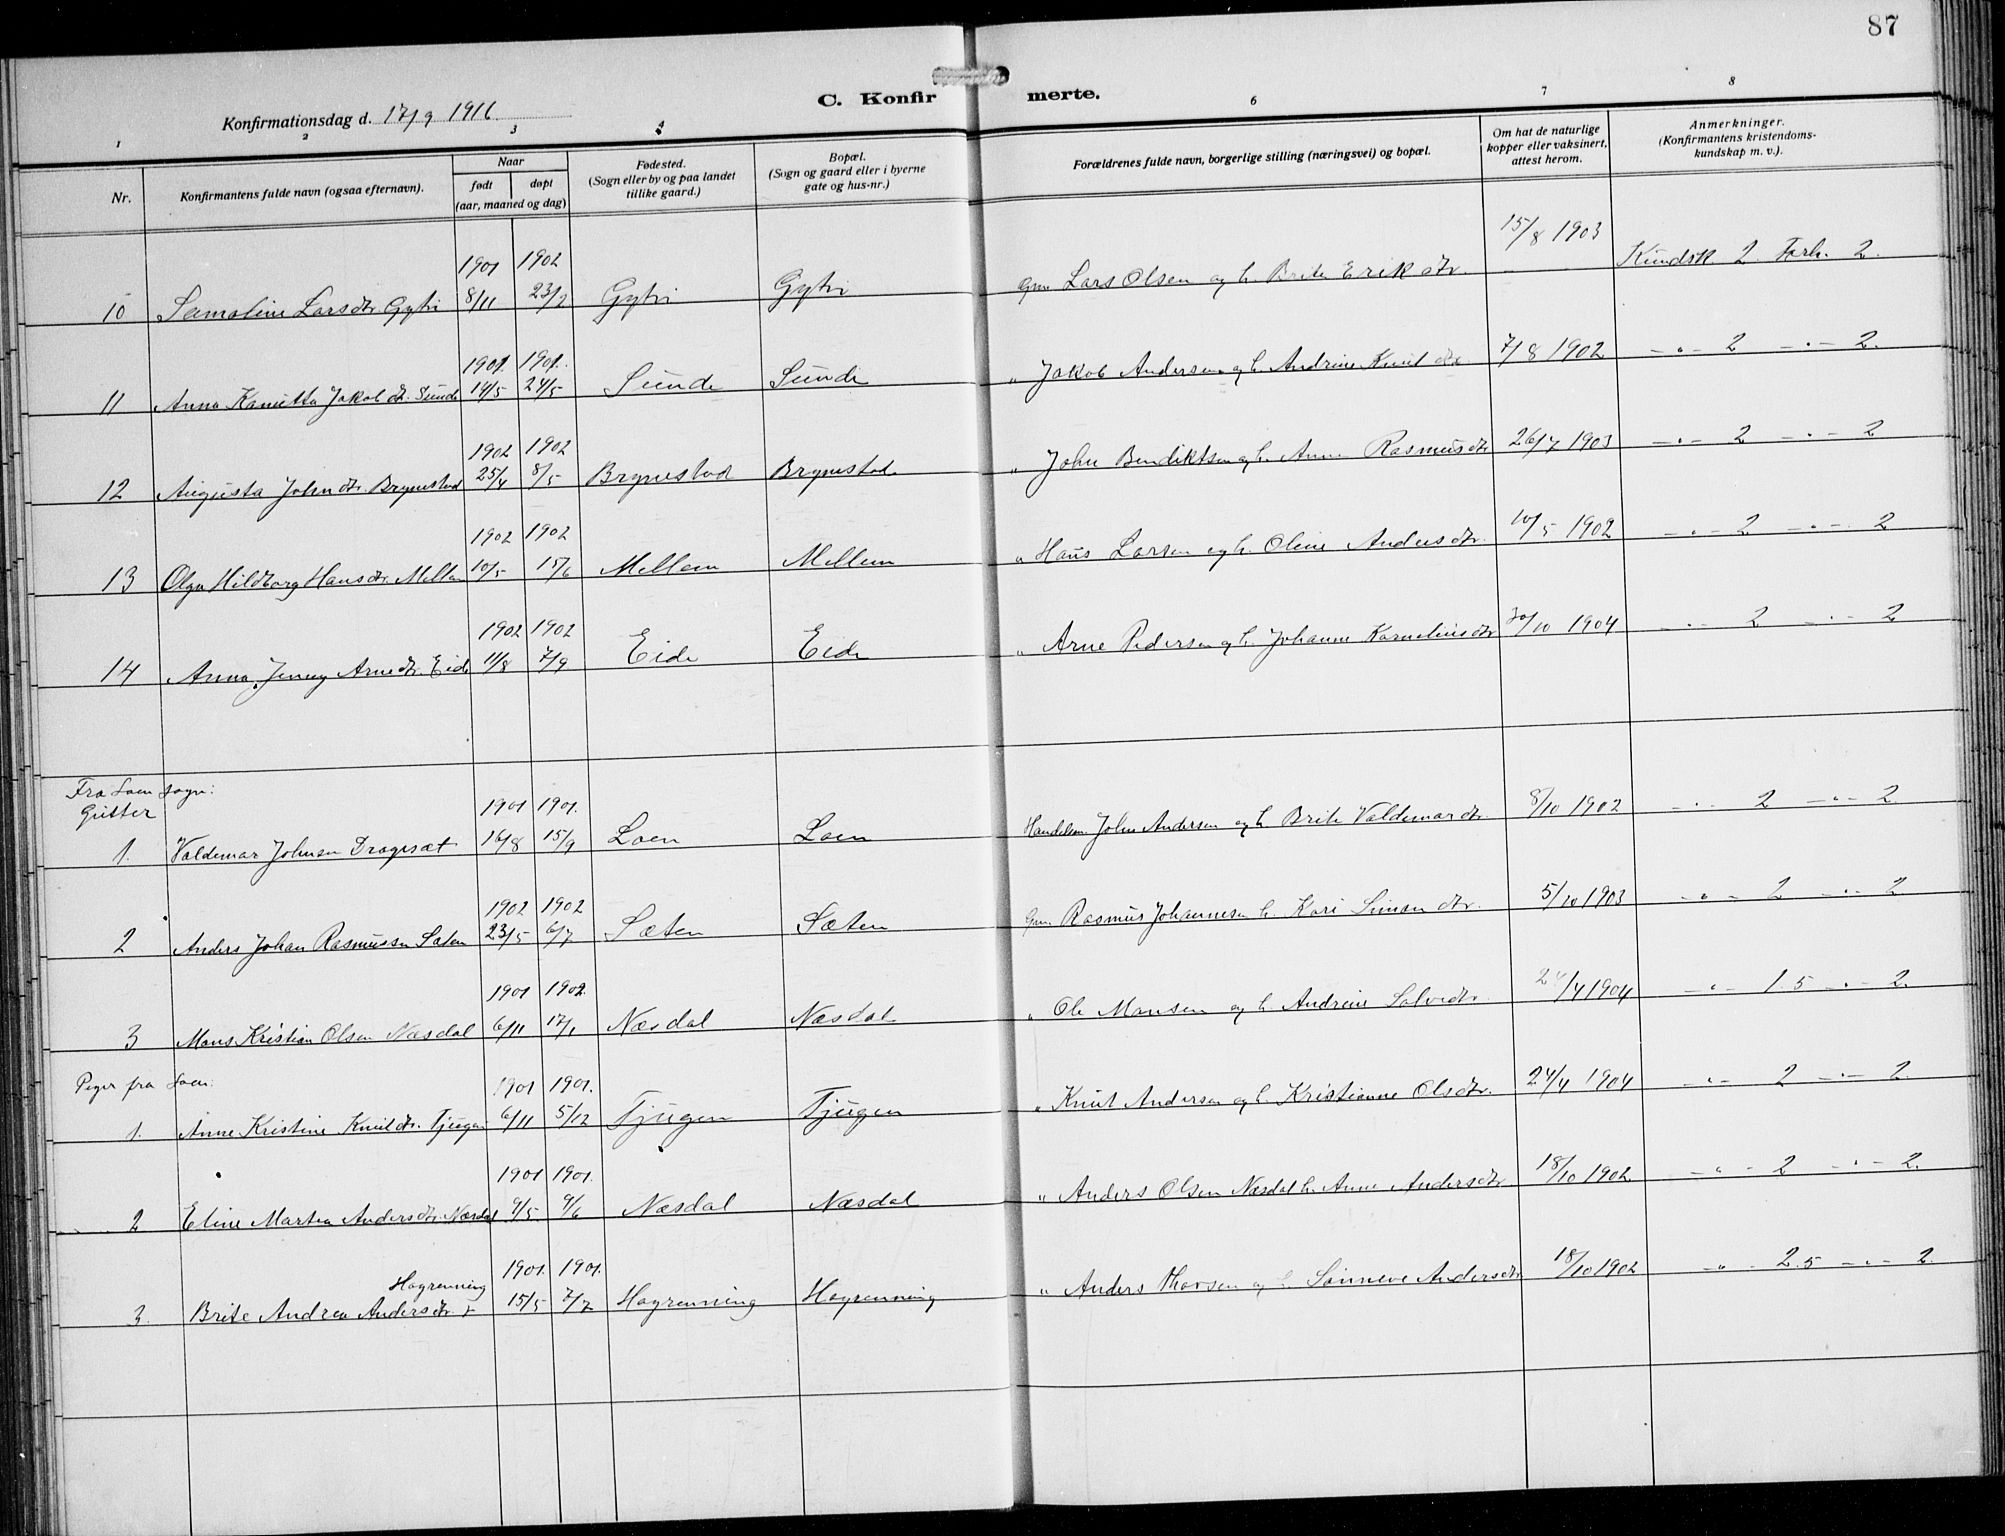 87
C. Konfirmerte.
Konfirmationsdag d. 17/9 1916.
1 2 3 4 6 7 8
Nr.
Konfirmantens fulde navn (ogsaa efternavn).
Naar
født døpt
(aar, maaned og dag)
Fødested.
(Sogn eller by og paa landet
tillike gaard.)
Bopæl.
(Sogn og gaard eller i byerne
gate og hus-nr.)
Forældrenes fulde navn, borgerlige stilling (næringsvei) og bopæl.
Om hat de naturlige
kopper eller vaksinert,
attest herom.
Anmerkninger.
(Konfirmantens kristendoms-
kundskap m. v.).
1901 1902 15/8 1903
10 Samoline Larsdtr. Gytri 8/11 23/2 Gytri Gytri Gm. Lars Olsen og h. Brite Erikdtr. Kundsk. 2 Forh. 2.
1901 1901.
11 Anna Jakobdtr. Sunde 14/5 24/5 Sunde Sunde " Jakob Andersen og h. Andrine Knutdtr. 7/8 1902 -"- 2 -"- 2.
1902 1902
12 Augusta Johndtr. Brynestad 25/4 8/5 Brynestad Brynestad " John Bendiktsen og h. Anne Rasmusdtr. 26/7 1903 -"- 2 -"- 2
1902 1902
13 Olga Hildborg Hansdtr. Mellem 10/5 15/6 Mellem Mellem " Hans Larsen og h. Oline Andersdtr. 10/5 1902 -"- 2 -"- 2
1902 1902
14 Anna Jenny Arnedtr. Eide 11/8 7/9 Eide Eide " Arne Pedersen og h. Johanne Korneliusdtr. 30/10 1904 -"- 2 -"- 2
Fra Loen sogn:
Gutter
1901 1901.
1. Valdemar Johnsen Dragesæt 16/8 15/9 Loen Loen Handelsm. John Andersen og h. Brite Valdemardtr. 8/10 1902 -"- 2 -"- 2
1902 1902
2 Anders Johan Rasmussen Sæten 23/5 6/7 Sæten Sæten Gm. Rasmus Johannesen h. Kari Simondtr. 5/10 1903 -"- 2 -"- 2
1901 1902.
3 Mons Kristian Olsen Næsdal 6/11 12/1 Næsdal Næsdal " Ole Monsen og h. Andrine 24/4 1904 -"- 1.5 -"- 2.
Piger fra Loen:
1901 1901.
1. Anne Kristine Knutdtr. Tjugen 6/11 5/12 Tjugen Tjugen " Knut Andersen og h. Kristianne Olsdtr. 24/4 1904 -"- 2 -"- 2.
1901 1901.
2 Eline Martea Andersdtr. Næsdal 9/5 9/6 Næsdal Næsdal " Anders Olsen Næsdal h. Anne Andersdtr. 18/10 1902. -"- 2 -"- 2.
1901. 1901.
Hogrenning
3. Brite Andrea Andersdtr. 15/5 7/7 Hogrenning Hogrenning " Anders Thorsen og h. Sønneve Andersdtr. 18/10 1902 -"- 2.5 -"- 2.